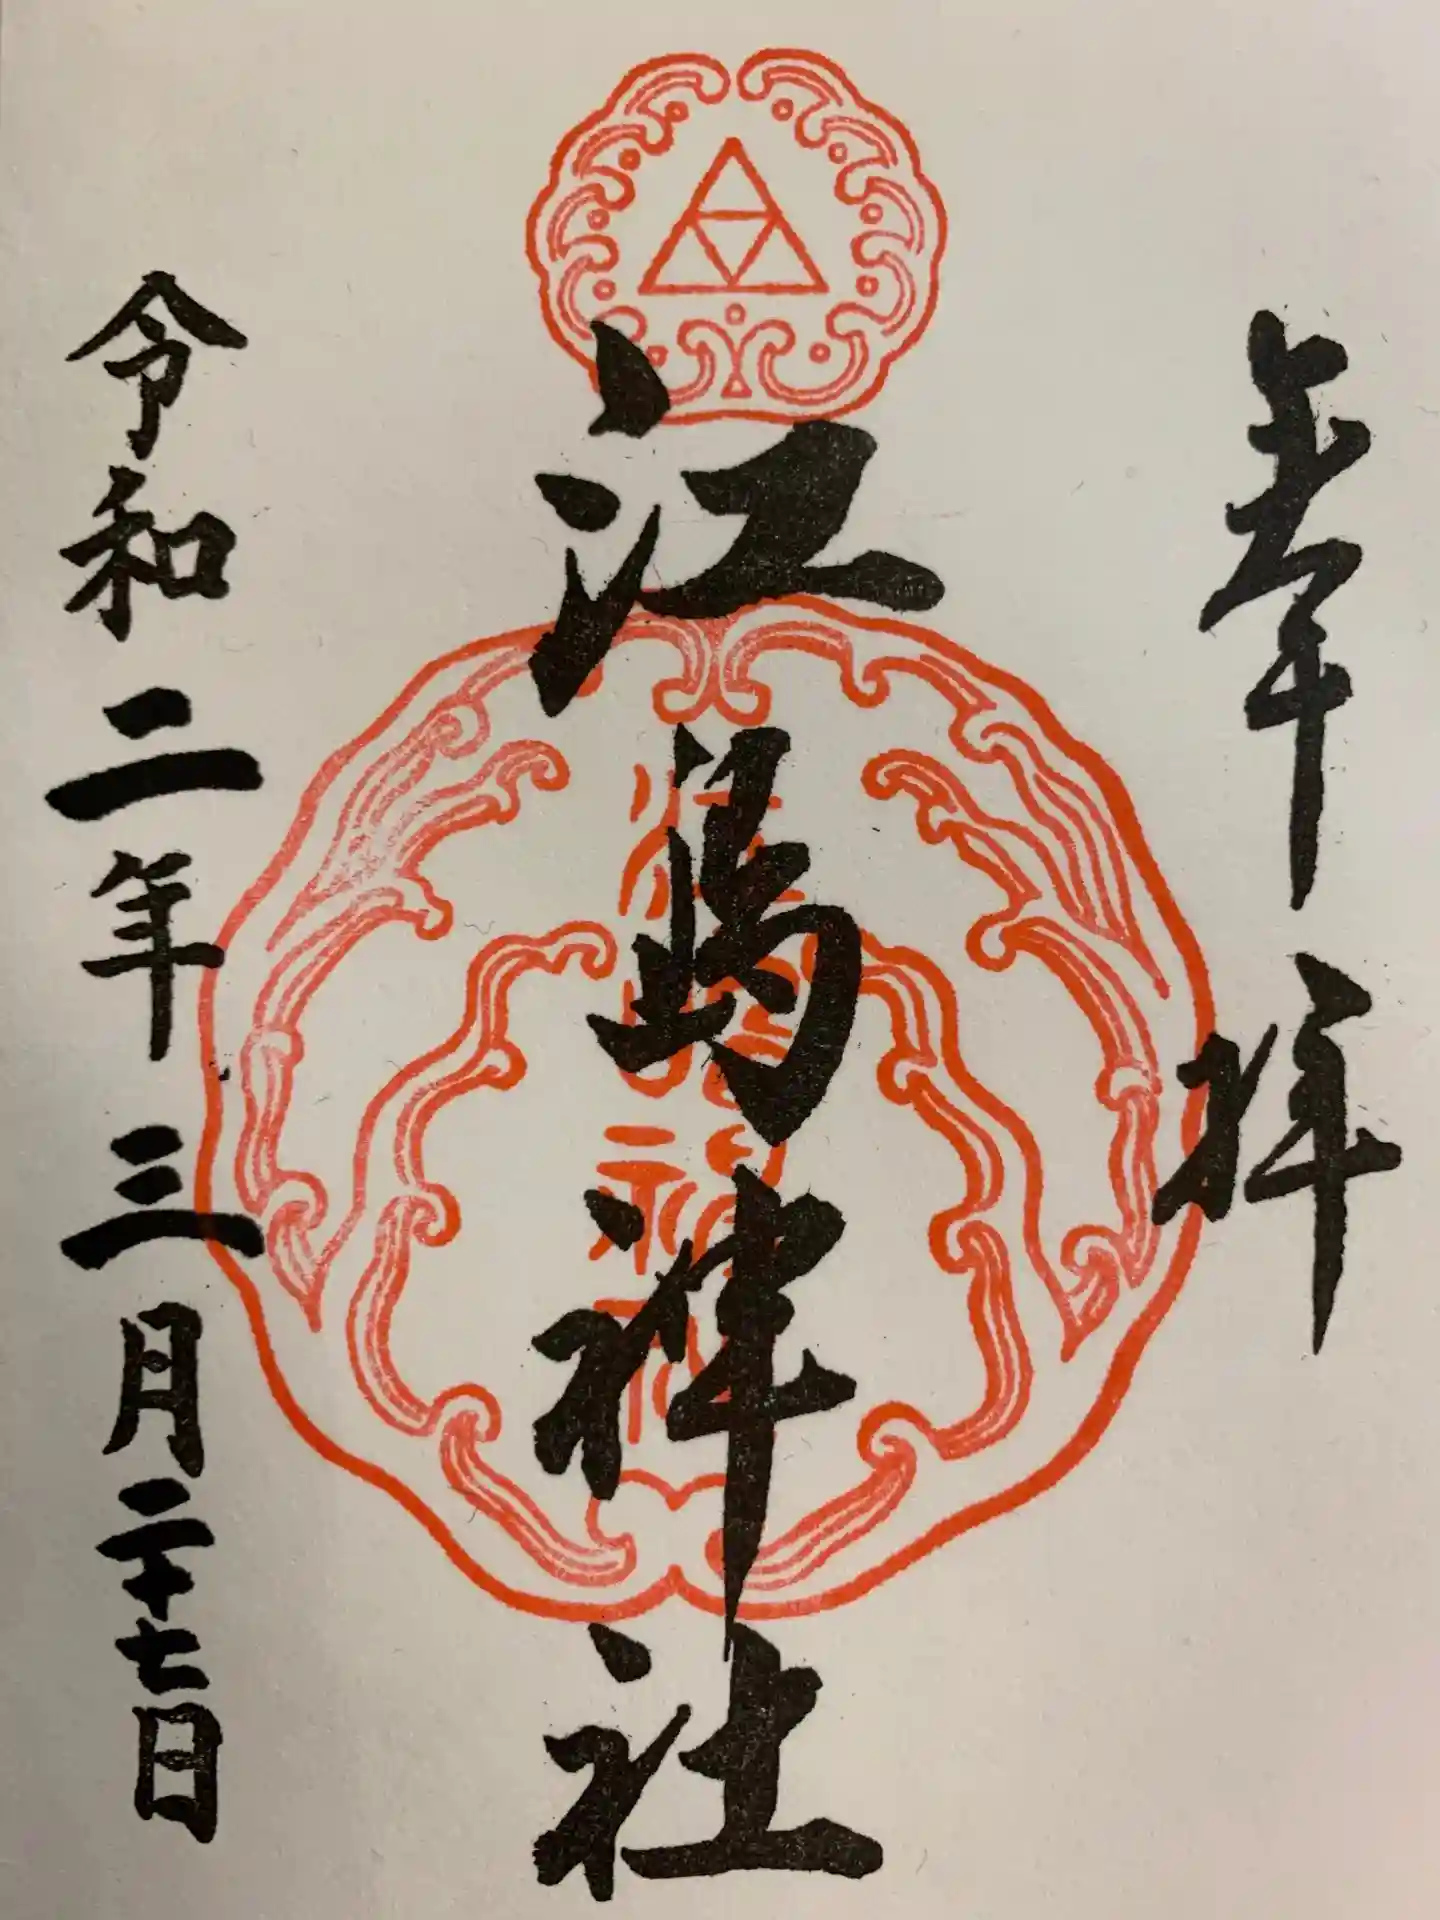 奉拝
江島神社
令和二年三月二十七日